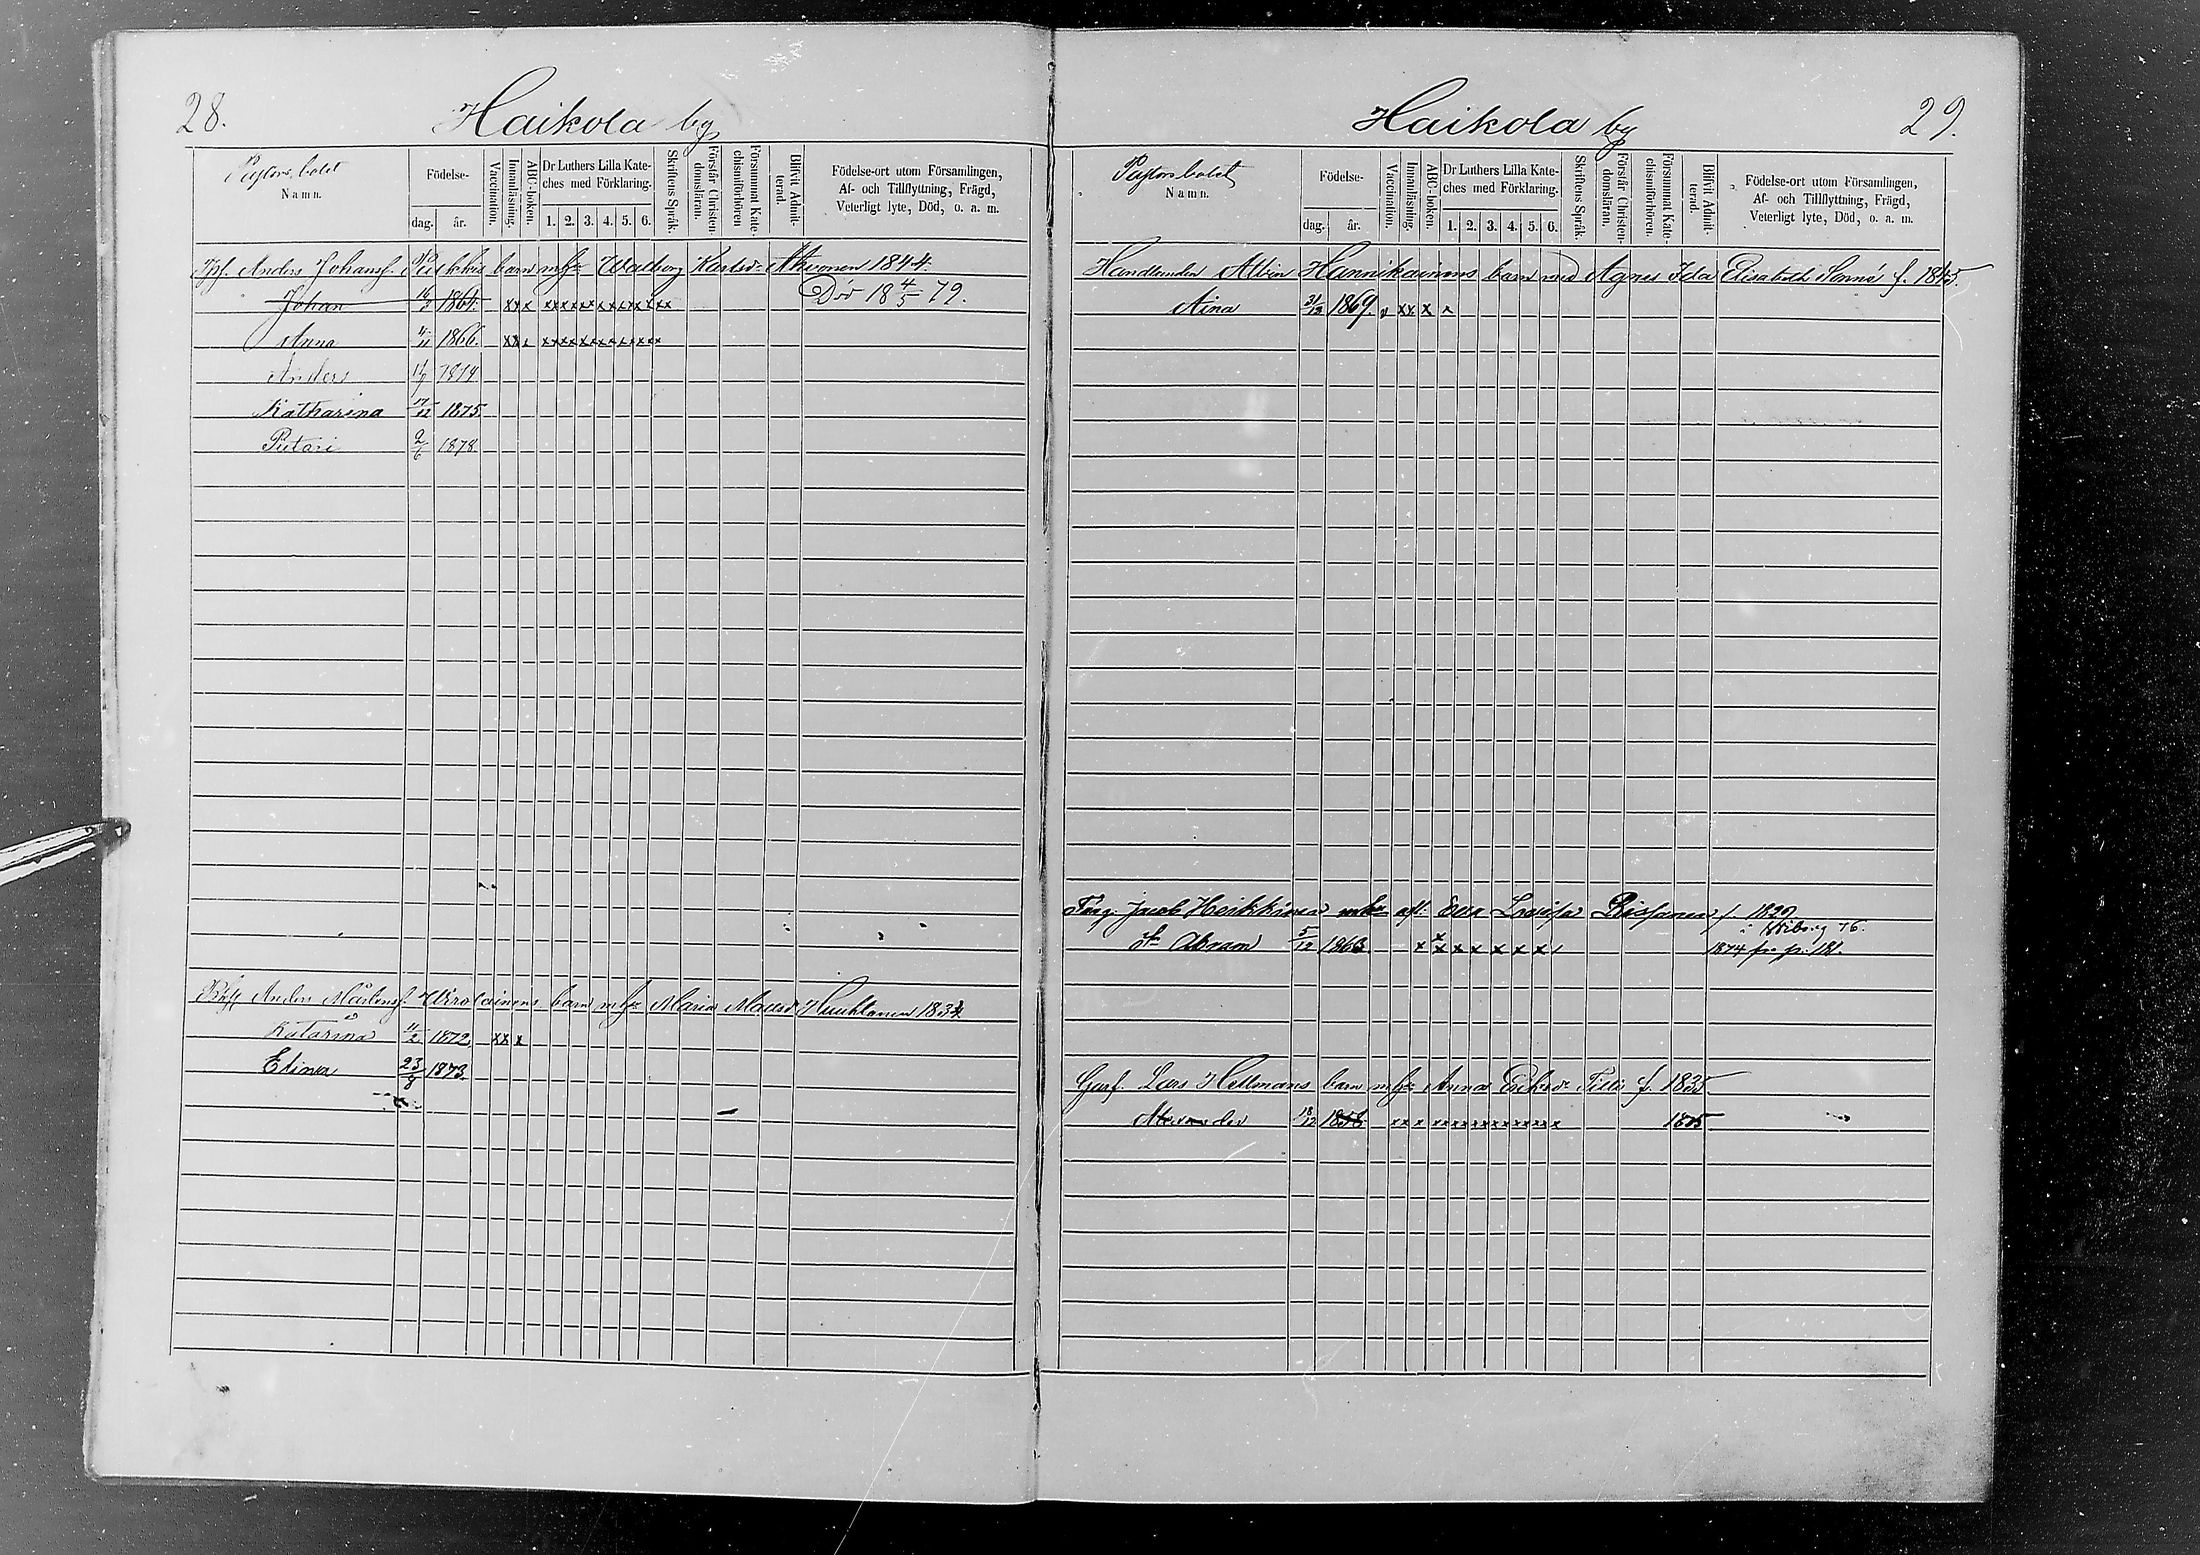 28.
Haikola by
Pastorsbolet
Namn.
Födelse-
dag. år.
Vaccination.
Innanläsning.
ABC-boken.
Dr Luthers Lilla Kate-
ches med Förklaring.
1. 2. 3. 4. 5. 6.
Skriftens Språk.
Förstår Christen-
domsläran.
Försummat Kate-
chismiförhören
Blifvit Admit-
terad.
Födelse-ort utom Församlingen,
Af- och Tillflyttning, Frägd,
Veterligt lyte, Död, o. a. m.
Anders Johanss. barn m hu Walborg Karlsd. 1844.
Johan 1864. xxx xxxxxxxxxxxx Död 18 4/5 79.
Anna 4/11 1866. xxx xxxxxxxxxxx
Anders 1874
Katharina 17/12 1875.
Pietari 2/6 1878
Anders Mårtenss. Wirolainens barn m hu Maria 1834.
Katarina 11/2 1872 xx x
Elina 23/8 1873.
Haikola by
29.
Pastorsbolet
Namn.
Födelse-
dag. år.
Vaccination.
Innanläsning.
ABC-boken.
Dr Luthers Lilla Kate-
ches med Förklaring.
1. 2. 3. 4. 5. 6.
Skriftens Språk.
Förstår Christen-
domsläran.
Försummat Kate-
chismiförhören.
Blifvit Admit-
terad.
Födelse-ort utom Församlingen,
Af- och Tillflyttning, Frägd,
Veterligt lyte, Död, o. a. m.
Handlanden Albin Hannikainens barn med Agnes Ida Elisabeth f. 1845.
Aina 31/12 1869. v xx x x
Jacob Heikkinen Eva Lovisa Rissanen f.
i Wiborg 76.
Abram 5/12 1863. x x x x x x x x 1874
Lars Hellmans barn m hu Anna f. 1835
Alexander 18/12 1858 xxx xxxxxxxxxxxx 1875